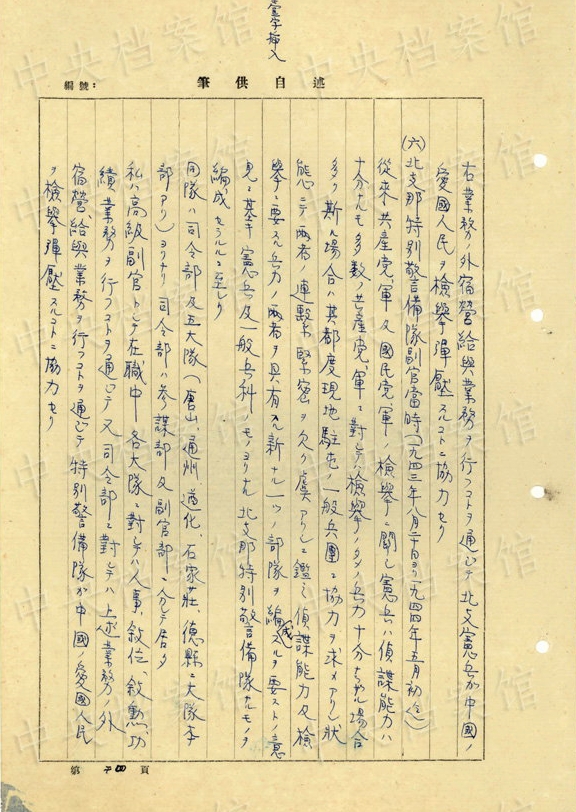 壹字挿入
編號：
筆供自述
右業務ノ外宿営給與業務ヲ行フコトヲ通シテ北支憲兵カ中國ノ
愛國人民ヲ檢舉彈壓スルコトニ協力セリ
(六)北支那特別警備隊副官當時(一九四三年八月二十日ヨリ一九四四年五月初迄)
從來共産党、軍及國民党、軍ノ檢舉ニ関シ憲兵ハ偵諜能力ハ
十分ナルモ多数ノ共産党、軍ニ對シテハ檢舉ノタメノ兵力十分ナラサル場合
多ク斯ル場合ハ其都度現地駐屯ノ一般兵團ニ協力ヲ求メアリシ状
態ニテ両者ノ連繋緊密ヲ欠ク虞アリシニ鑑ミ偵諜能力及檢
舉ニ要スル兵力ノ両者ヲ具有スル新ナル一ツノ部隊ヲ編成スルヲ要ストノ意
見ニ基キ憲兵及一般兵科ノモノヨリナル北支那特別警備隊ナルモノヲ
編成セラルルニ至レリ
同隊ハ司令部及五大隊(唐山、通州、遵化、石家莊、德縣ニ大隊本
部アリ)ヨリナリ司令部ハ参謀部及副官部ニ分テ居タ
私ハ高級副官トシテ在職中各大隊ニ對シテハ人事、敘位、敘勳、功
績業務ヲ行フコトヲ通シテ又司令部ニ對シテハ上述業務ノ外
宿營、給與業務ヲ行フコトヲ通シテ特別警備隊カ中國ノ愛國人民
ヲ檢舉彈壓スルコトニ協力セリ
第 頁
中央档案馆